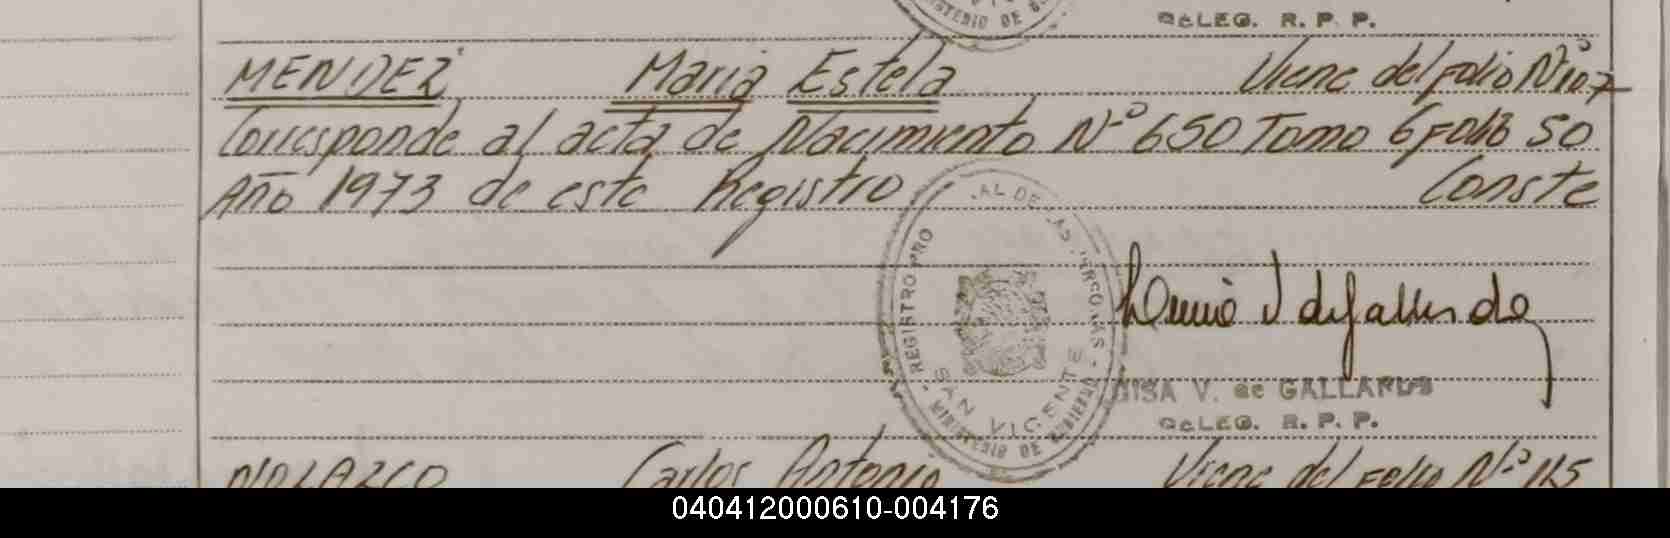 MINISTERIO DE
DELEG. R. P. P.
MENDEZ Maria Estela Viene del Folio Nº 107
Corresponde al acta de Nacimiento Nº 650 Tomo 6 Folio 50
Año 1973 de este Registro Conste
REGISTRO PRO AL DE LAS PERSONAS - MINISTERIO DE GOBIERNO -
SAN VICENTE
V. de GALLARDO
DELEG. R. P. P.
NOLAZCO Carlos Antonio Viene del Folio Nº 115
040412000610-004176